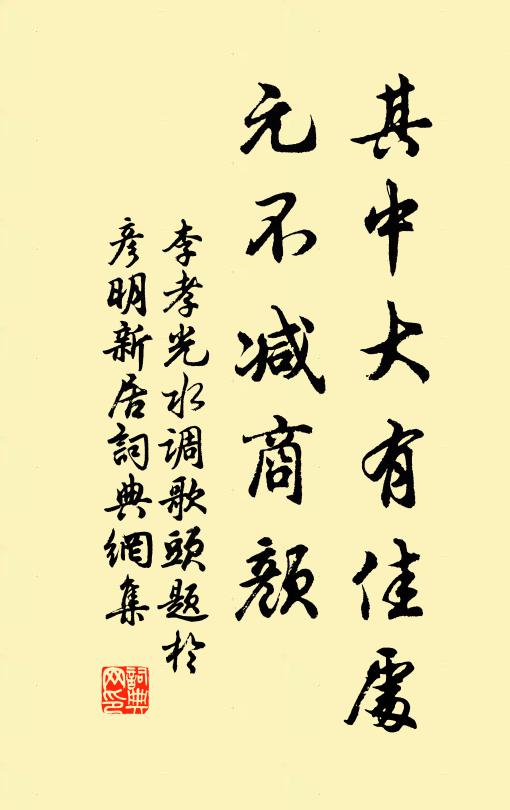 其中大有佳處
元不减商顏
李孝光水调歌頭题於
彦明新居詞典網集
詞典网印